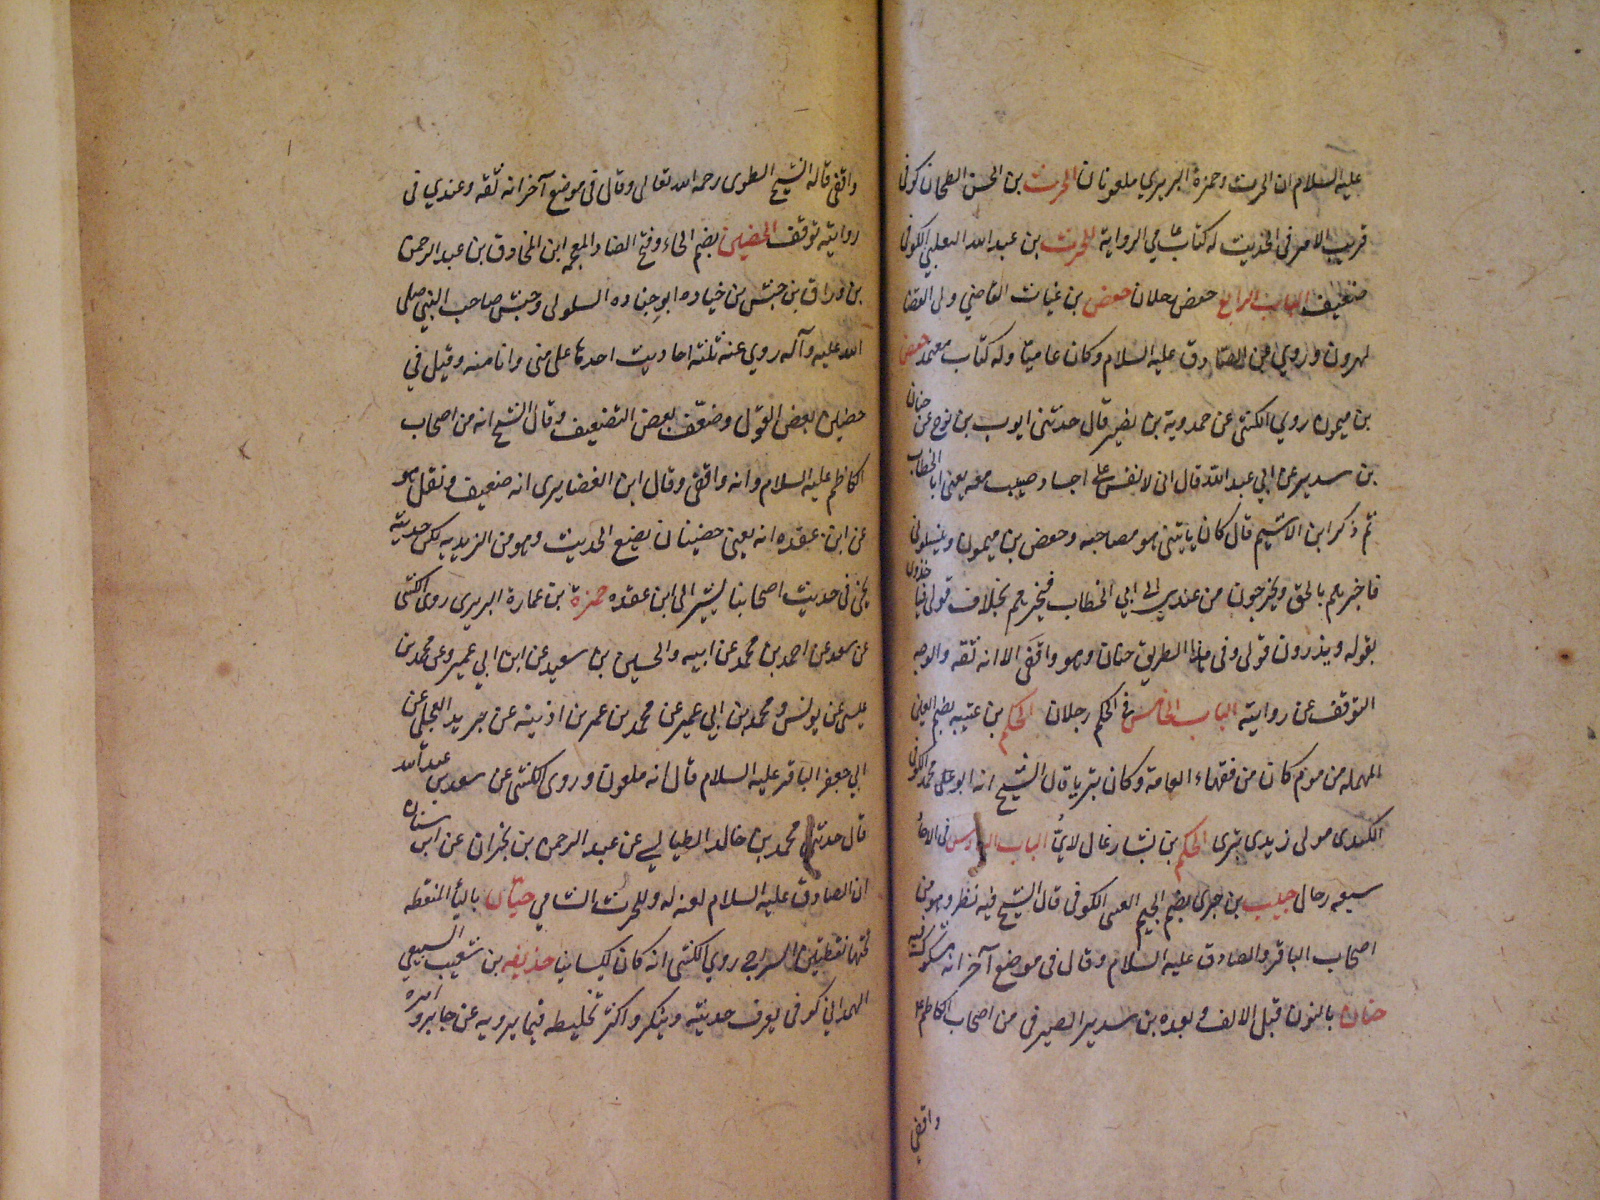 عليه السلام ان الحرث وحمزة البربري ملعونان الحرث بن الحسن الطحان كوفي
قريب الامر في الحديث له كتاب عامي الرواية الحرث بن عبد الله التغلبي الكوفي
ضعيف الباب الرابع حفص رجلان حفص بن غياث القاضي ولي القضا
لهرون وروى عن الصادق عليه السلام وكان عاميا وله كتاب معتمد حفص
بن ميمون روي الكشي عن حمدوية بن نصير قال حدثني ايوب بن نوح عن حنان
بن سدير عن ابي عبد الله قال اني لانفس على اجساد صيب معه يعني ابا الخطاب
ثم ذكر ابن الاشيم قال كان ياتيني هو وصاحبه وحفص بن ميمون ويسئلوني
فاخبرهم بالحق ويخرجون من عندي الى ابي الخطاب فيخبرهم بخلاف قولي فياخذون
بقوله ويذرون قولي وفي هذا الطريق حنان وهو واقفي الا انه ثقه والوجه
التوقف عن روايته الباب الخامس في الحكم رجلان الحكم بن عتيبه بضم العين
المهمله من موم كان من فقهاء العامة وكان بتريا قال الشيخ انه ابو محمد الكوفي
الكندى مولى زيدى بترى الحكم بن بشار غال لاشئ الباب السادس في الاحاد
سبعه رجال حبيب بن جرى بضم الجيم العبسى الكوفى قال الشيخ فيه نظر وهو من
اصحاب الباقر والصادق عليه السلام وقال فى موضع آخر انه مشكوك فيه
حنان بالنون قبل الالف وبعده بن سدير الصيرفى من اصحاب الكاظم ع
واقفي
واقفى قاله الشيخ الطوسى رحمه الله تعالى وقال فى موضع آخر انه ثقه وعندي فى
روايته توقف الحضين بضم الحاء وفتح الضاد المعجمه ابن المخارق بن عبد الرحمن
بن ورقاء بن حبشى بن جناده ابو جناده السلولى وحبشى صاحب النبي صلى
الله عليه وآله روي عنه ثلثه احاديث احدها علي منى وانا منه وقيل في
حضين بعض القول وضعف بعض التضعيف وقال الشيخ انه من اصحاب
الكاظم عليه السلام وانه واقفى وقال ابن الغضايرى انه ضعيف ونقل هو
عن ابن عقده انه يعنى حضينا كان يضع الحديث وهو من الزيديه لكن حديثه
يجئ فى حديث اصحابنا يشير الى ابن عقده حمزة بن عمارة البربرى روى الكشى
عن سعد عن احمد بن محمد عن ابيه والحسين بن سعيد عن ابن ابي عمير وعن محمد بن
عيسى عن يونس ومحمد بن ابي عمير عن محمد بن عمر بن اذينه عن بريد العجلى عن
ابي جعفر الباقر عليه السلام قال انه ملعون وروى الكشى عن سعد بن عبد الله
قال حدثنى محمد بن خالد الطيالسى عن عبد الرحمن بن نجران عن ابن سنان
ان الصادق عليه السلام لعنه له وللحرث الشامي حيان بالياء المنقطه
تحتها نقطتين السراج روى الكشى انه كان كيسانيا حذيفه بن شعيب السبيعي
الهمداني كوفى يعرف حديثه وينكر واكثر تخليطه فيما يرويه عن جابر وامره